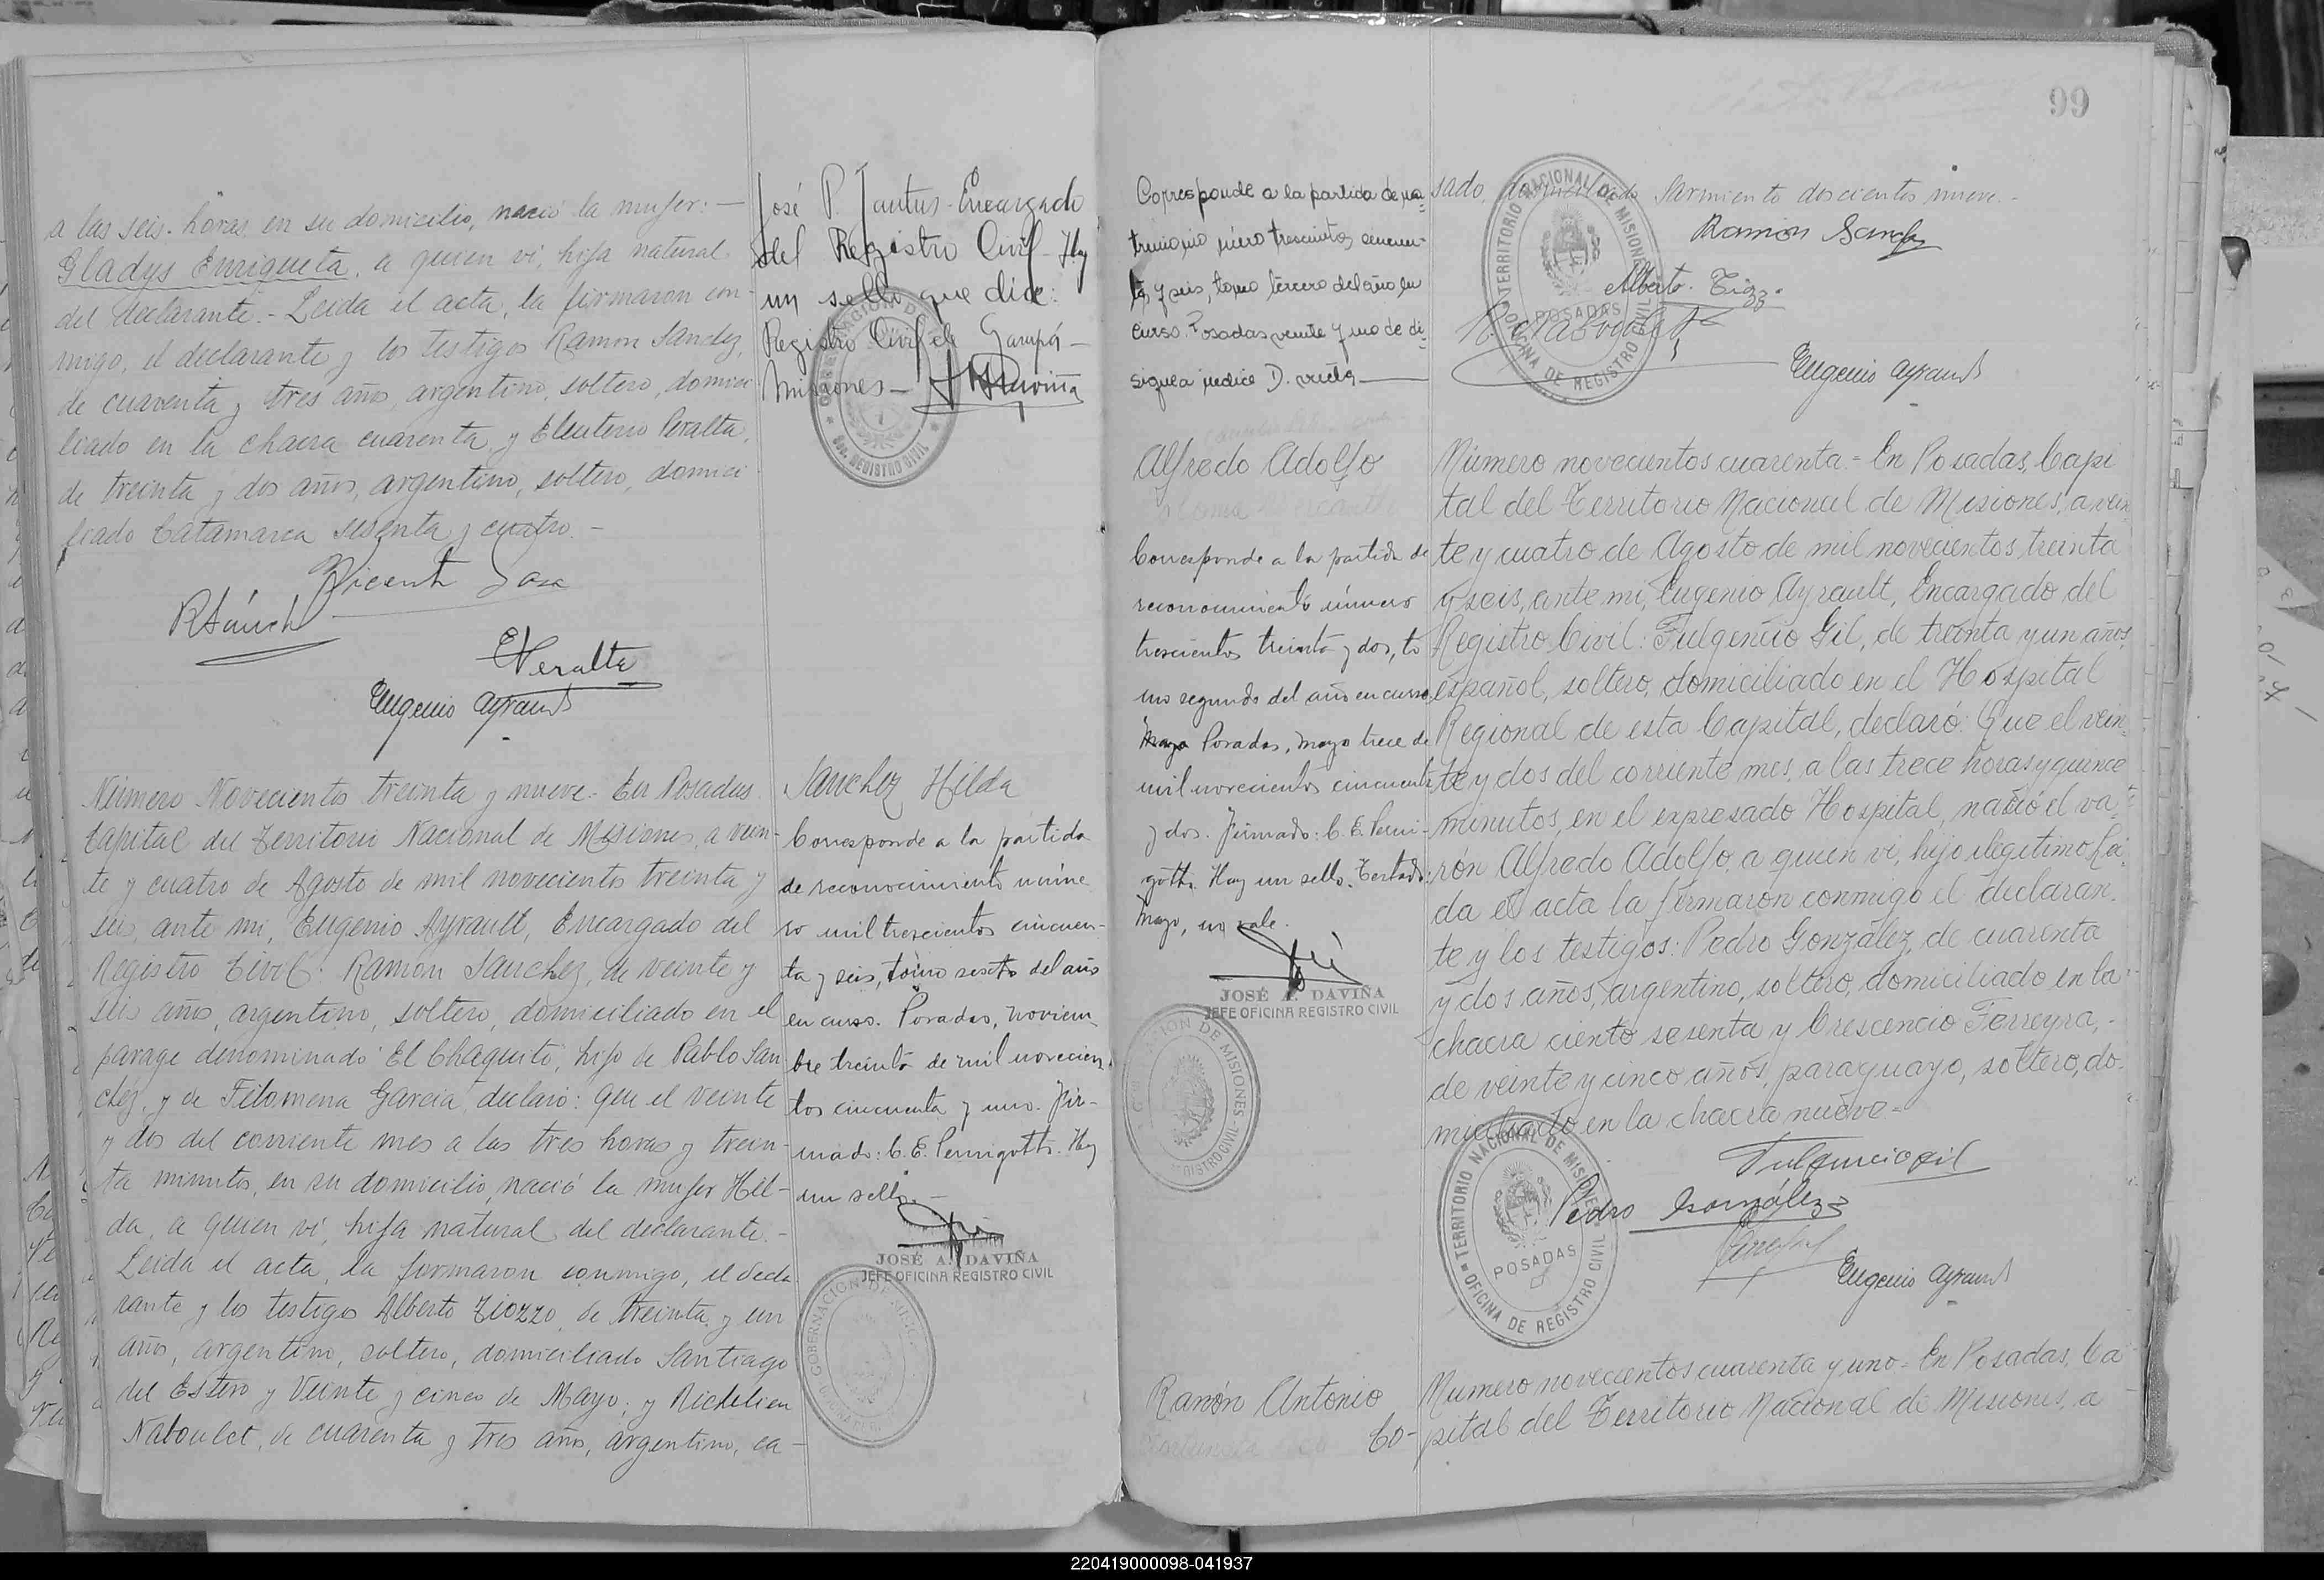 a las seis horas, en su domicilio, nació la mujer: —
Gladys Enriqueta, a quien vi, hija natural
del declarante.- Leida el acta, la firmaron con-
migo, el declarante y los testigos Ramon Sanchez,
de cuarenta y tres años, argentino, soltero, domici-
liado en la chacra cuarenta, y Eleuterio Peralta,
de treinta y dos años, argentino, soltero, domici-
liado Catamarca sesenta y cuatro.-
Vicente Sosa
RSánch
EPeralta
Eugenio Ayrault
José P. Encargado
del Registro Civil Hay
un sello que dice:
Registro Civil de Garupá-
Misiones—
Número Novecientos treinta y nueve.- En Posadas
Capital del Territorio Nacional de Misiones, a vein-
te y cuatro de Agosto de mil novecientos treinta y
seis, ante mi, Eugenio Ayrault, Encargado del
Registro Civil: Ramon Sanchez, de veinte y
seis años, argentino, soltero, domiciliado en el
parage denominado "El Chaquito", hijo de Pablo San-
chez, y de Filomena Garcia, declaró: que el veinte
y dos del corriente mes a las tres horas y trein-
ta minutos, en su domicilio, nació la mujer Hil-
da, a quien vi, hija natural del declarante.-
Leida el acta, la firmaron conmigo, el decla
rante y los testigos Alberto Tiozzo, de treinta y un
años, argentino, soltero, domiciliado Santiago
del Estero y Veinte y cinco de Mayo; y Richelieu
Naboulet, de cuarenta y tres años, argentino, ca-
Sanchez Hilda
Corresponde a la partida
de reconocimiento núme
ro mil trescientos cincuen-
ta y seis, tomo sexto del año
en curso. Posadas, noviem
bre treinta de mil novecien
tos cincuenta y uno. Fir-
mado: C. E. Pernigotti. Hay
un sello.-
JOSÉ A. DAVIÑA
JEFE OFICINA REGISTRO CIVIL
GOBERNACION DE MISIONES
99
Corresponde a la partida de ma
trimonio número trescientos cincuen-
ta y seis, tomo tercero del año en
curso. Posadas veinte y uno de di-
sigue a indice D. vuelta—
sado, domiciliado Sarmiento doscientos nueve.-
Ramón Sanchez
Alberto Tiozzo
R. Naboulet
Eugenio Ayrault
TERRITORIO NACIONAL DE MISIONES
POSADAS
OFICINA DE REGISTRO CIVIL
Alfredo Adolfo
Corresponde a la partida de
reconocimiento número
trescientos treinta y dos, to
mo segundo del año en curso.
Mayo Posadas, mayo trece de
mil novecientos cincuenta
y dos. Firmado: C. E. Perni-
gotti. Hay un sello. Testado:
Mayo, no vale.
JOSÉ A. DAVIÑA
JEFE OFICINA REGISTRO CIVIL
Número novecientos cuarenta.- En Posadas, Capi
tal del Territorio Nacional de Misiones, a vein
te y cuatro de Agosto de mil novecientos treinta
y seis, ante mi, Eugenio Ayrault, Encargado del
Registro Civil: Fulgencio Gil, de treinta y un años,
español, soltero, domiciliado en el Hospital
Regional de esta Capital, declaró: Que el vein
te y dos del corriente mes, a las trece horas y quince
minutos, en el expresado Hospital, nació el va-
rón Alfredo Adolfo, a quien vi, hijo ilegitimo. Lei-
da el acta la firmaron conmigo el declaran
te y los testigos: Pedro González, de cuarenta
y dos años, argentino, soltero, domiciliado en la
chacra ciento sesenta y Crescencio Ferreyra,-
de veinte y cinco años, paraguayo, soltero, do-
miciliado en la chacra nueve.-
Fulgencio Gil
Pedro González
Eugenio Ayrault
TERRITORIO NACIONAL DE MISIONES
POSADAS
OFICINA DE REGISTRO CIVIL
Ramón Antonio
Numero novecientos cuarenta y uno- En Posadas, Ca
pital del Territorio Nacional de Misiones, a
220419000098-041937